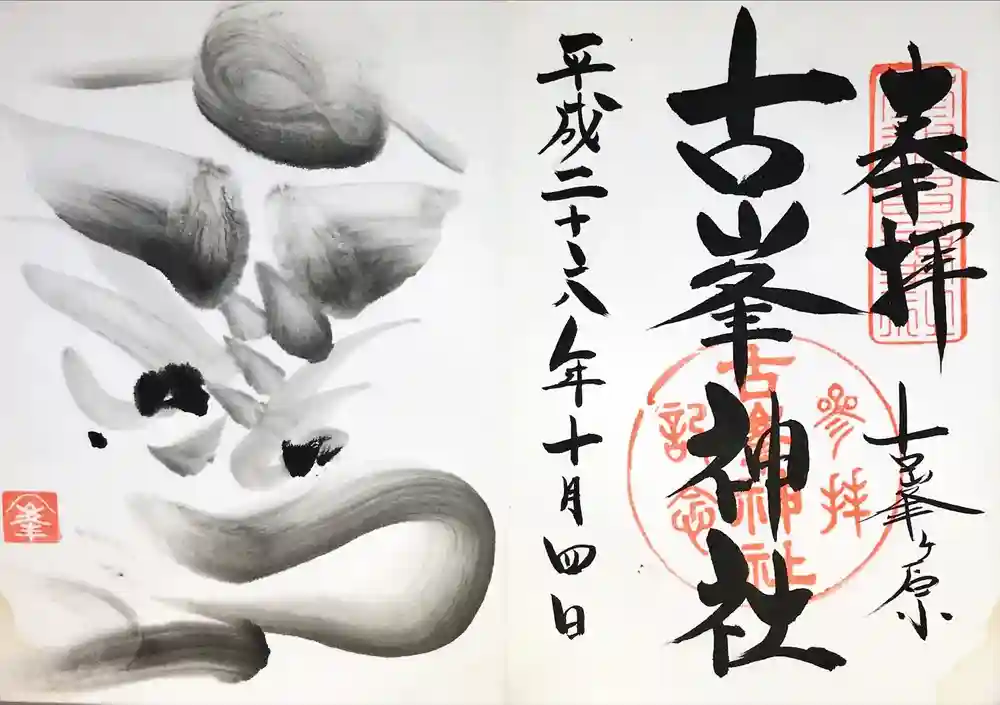 奉拝
古峯ヶ原
古峯神社
参拝
古峯神社
記念
平成二十六年十月四日
峯